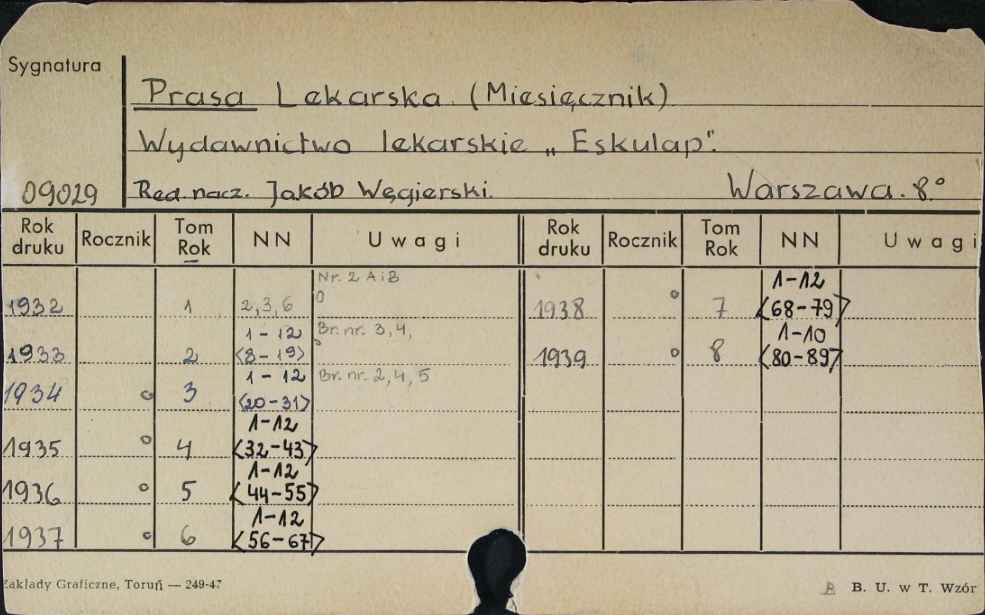 Sygnatura
Prasa Lekarska (Miesięcznik)
Wydawnictwo lekarskie „Eskulap".
09029 Red. nacz. Jakób Węgierski. Warszawa. 8°
Rok druku Rocznik Tom Rok NN Uwagi Rok druku Rocznik Tom Rok NN Uwagi
1932 1 2,3,6 Nr. 2 A i B
1933 2 1-12 <8-19> Br. nr. 3, 4,
1934 3 1-12 <20-31> Br. nr. 2, 4, 5
1935 4 1-12 <32-43>
1936 5 1-12 <44-55>
1937 6 1-12 <56-67>
1938 7 1-12 <68-79>
1939 8 1-10 <80-89>
Zakłady Graficzne, Toruń — 249-47
B. U. w T. Wzór